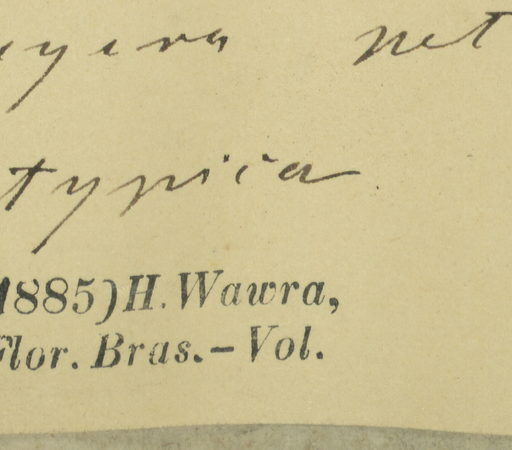 net
typica
1885) H. Wawra,
Flor. Bras. – Vol.